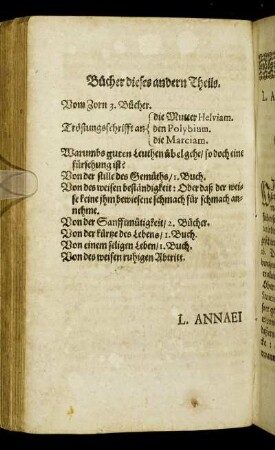 Bücher dieses andern Theils.
Vom Zorn 3. Bücher.
die Mutter Helviam.
Tröstungsschrifft an den Polybium.
die Marciam.
Warumbs guten Leuthen übel gehe / so doch eine
fürsehung ist?
Von der stille des Gemüths / 1. Buch.
Von des weisen beständigkeit: Oder daß der wei-
se keine jhm bewiesene schmach für schmach an-
nehme.
Von der Sanfftmütigkeit / 2. Bücher.
Von der kürtze des Lebens / 1. Buch.
Von einem seligen Leben / 1. Buch.
Von des weisen ruhigen Abtritt.
L. ANNAEI
L. A